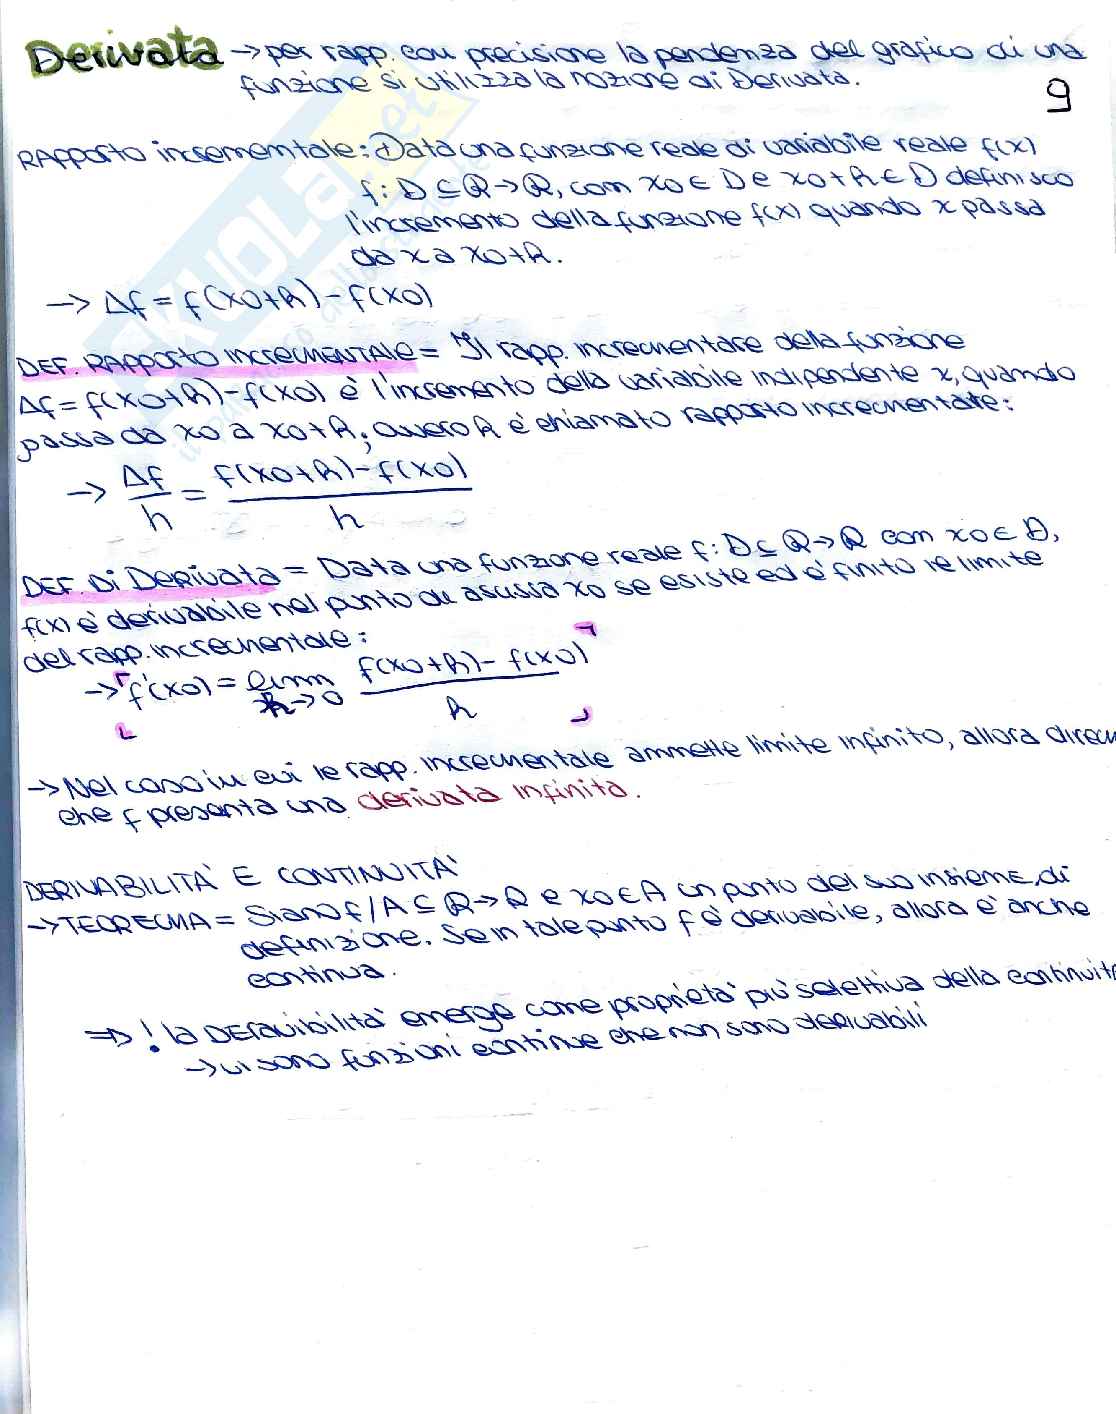 Derivata → per rapp. con precisione la pendenza del grafico di una
funzione si utilizza la nozione di Derivata.
9
RAPPORTO incrementale: Data una funzione reale di variabile reale f(x)
f: D ⊆ R → R, con x0 ∈ D e x0+h ∈ D definisco
l'incremento della funzione f(x) quando x passa
da x a x0+h.
→ Δf = f(x0+h) - f(x0)
DEF. RAPPORTO INCREMENTALE = Il rapp. incrementare della funzione
Δf = f(x0+h) - f(x0) è l'incremento della variabile indipendente x, quando
passa da x0 a x0+h; ovvero h è chiamato rapporto incrementale:
→ Δf/h = f(x0+h) - f(x0) / h
DEF. DI DERIVATA = Data una funzione reale f: D ⊆ R → R con x0 ∈ D,
f(x) è derivabile nel punto di ascissa x0 se esiste ed è finito il limite
del rapp. incrementale:
→ f'(x0) = lim h→0 f(x0+h) - f(x0) / h
→ Nel caso in cui il rapp. incrementale ammette limite infinito, allora
che f presenta una derivata infinita.
DERIVABILITÀ E CONTINUITÀ
→ TEOREMA = Siano f/A ⊆ R → R e x0 ∈ A un punto del suo insieme di
definizione. Se in tale punto f è derivabile, allora è anche
continua.
⇒ ! la DERIVIBILITÀ emerge come proprietà più selettiva della continuità
→ vi sono funzioni continue che non sono derivabili
SKUOLA.net